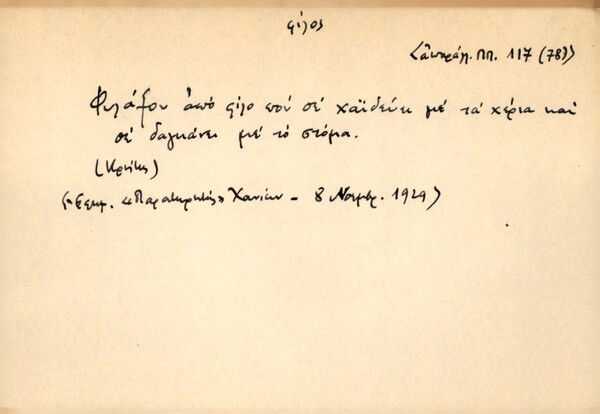 φίλος
Σαπφάρη. ΠΠ. 117 (78))
Φυλάξου ἀπό φίλο πού σέ χαϊδεύει μέ τά χέρια καί
σέ δαγκάνει μέ τό στόμα.
(Κρήτης)
(Ἐφημ. «Παρατηρητής» Χανίων - 8 Νοεμβρ. 1929)